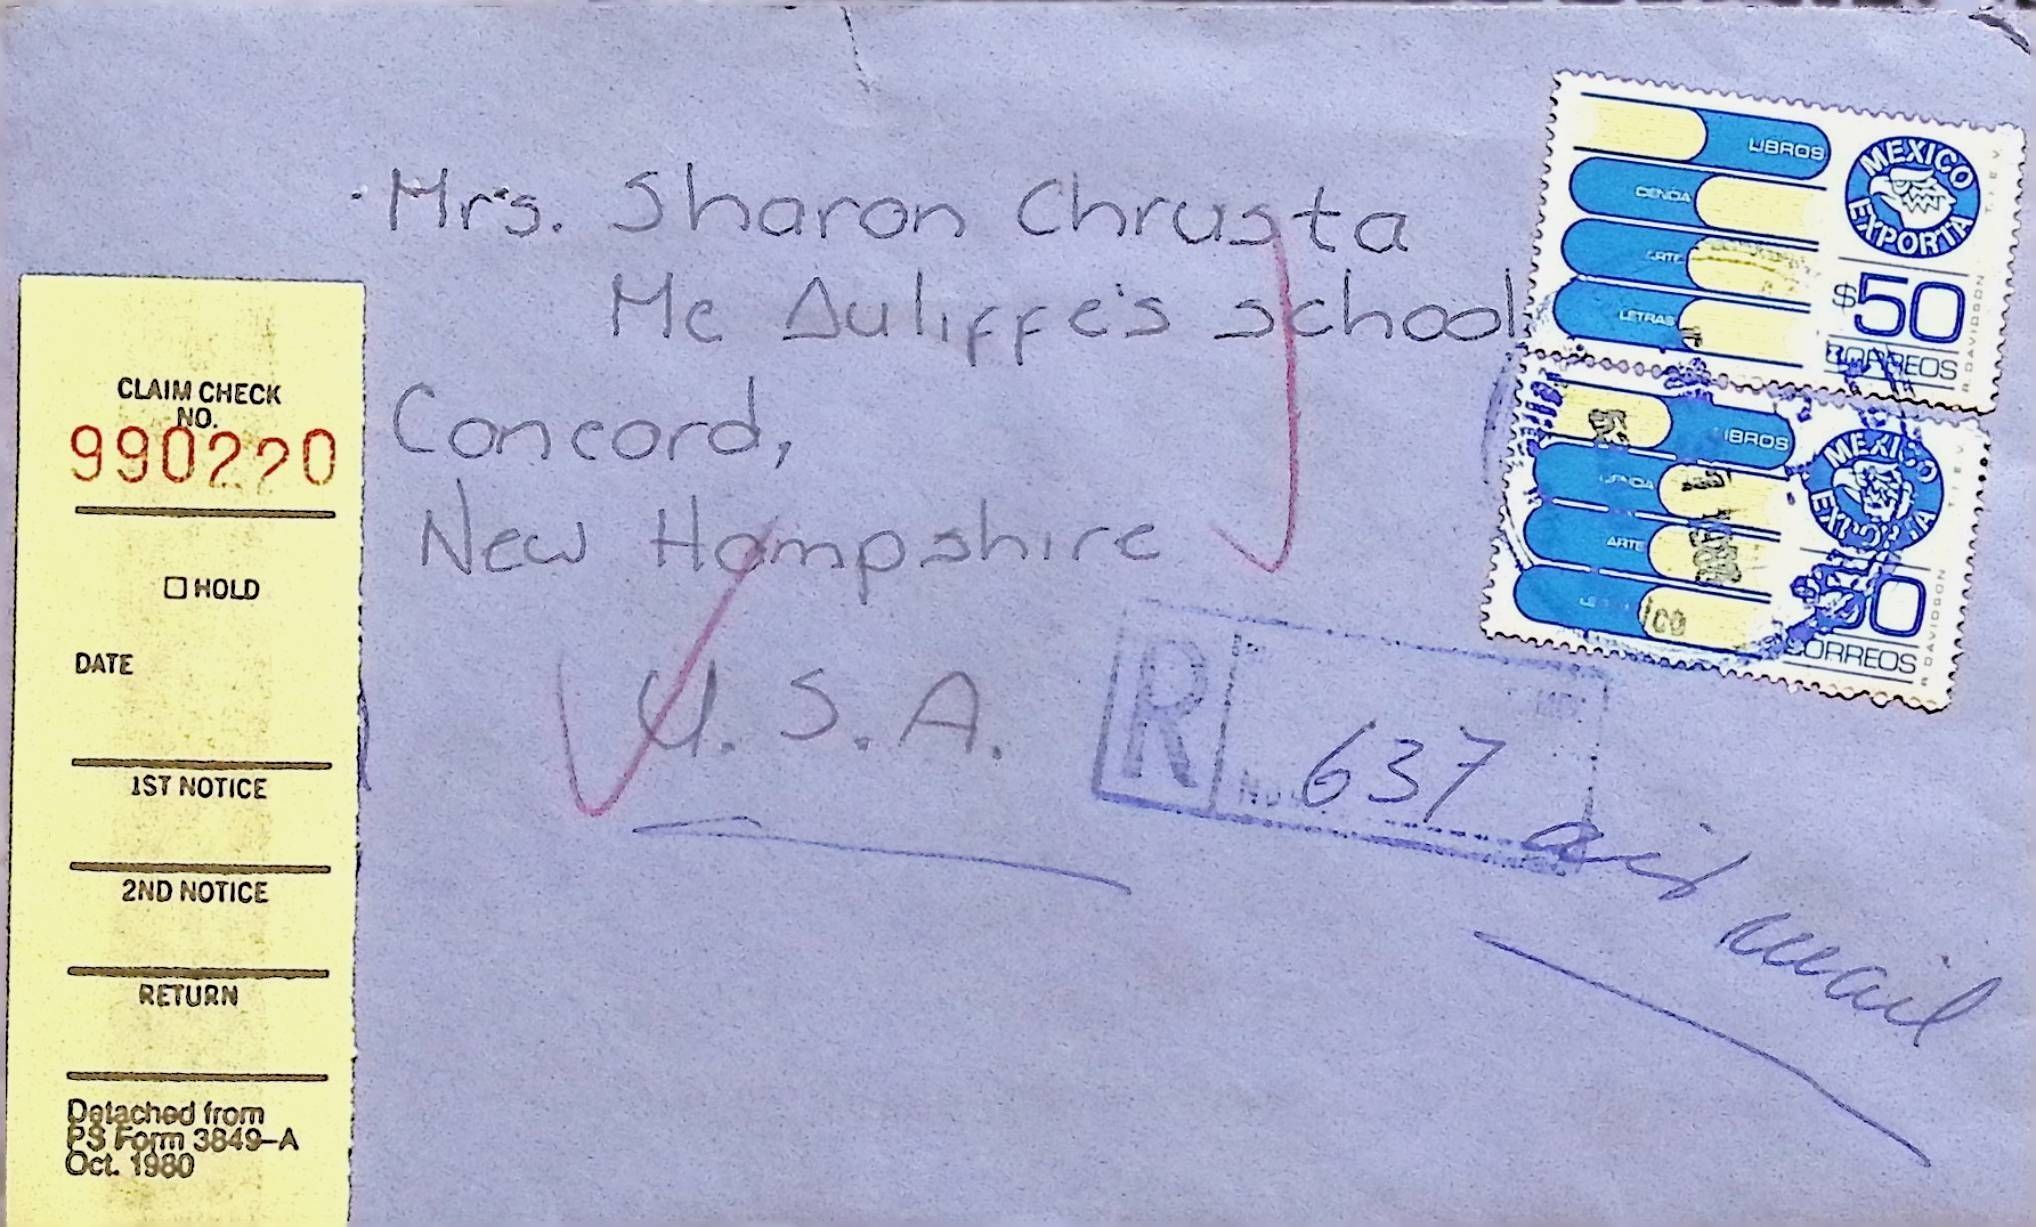 Mrs. Sharon Chrusta
Mc Auliffe's school
Concord,
New Hampshire
U. S. A.
CLAIM CHECK
NO.
990220
HOLD
DATE
1ST NOTICE
2ND NOTICE
RETURN
Detached from
PS Form 3849-A
Oct. 1980
LIBROS
CIENCIA
ARTE
LETRAS
MEXICO
EXPORTA
$50
CORREOS
R. DAVIDSON
T.I.E.V.
IBROS
ARTE
MEXICO
CORREOS
R DAVIDSON
T.I.E.V.
R
No 637
air mail